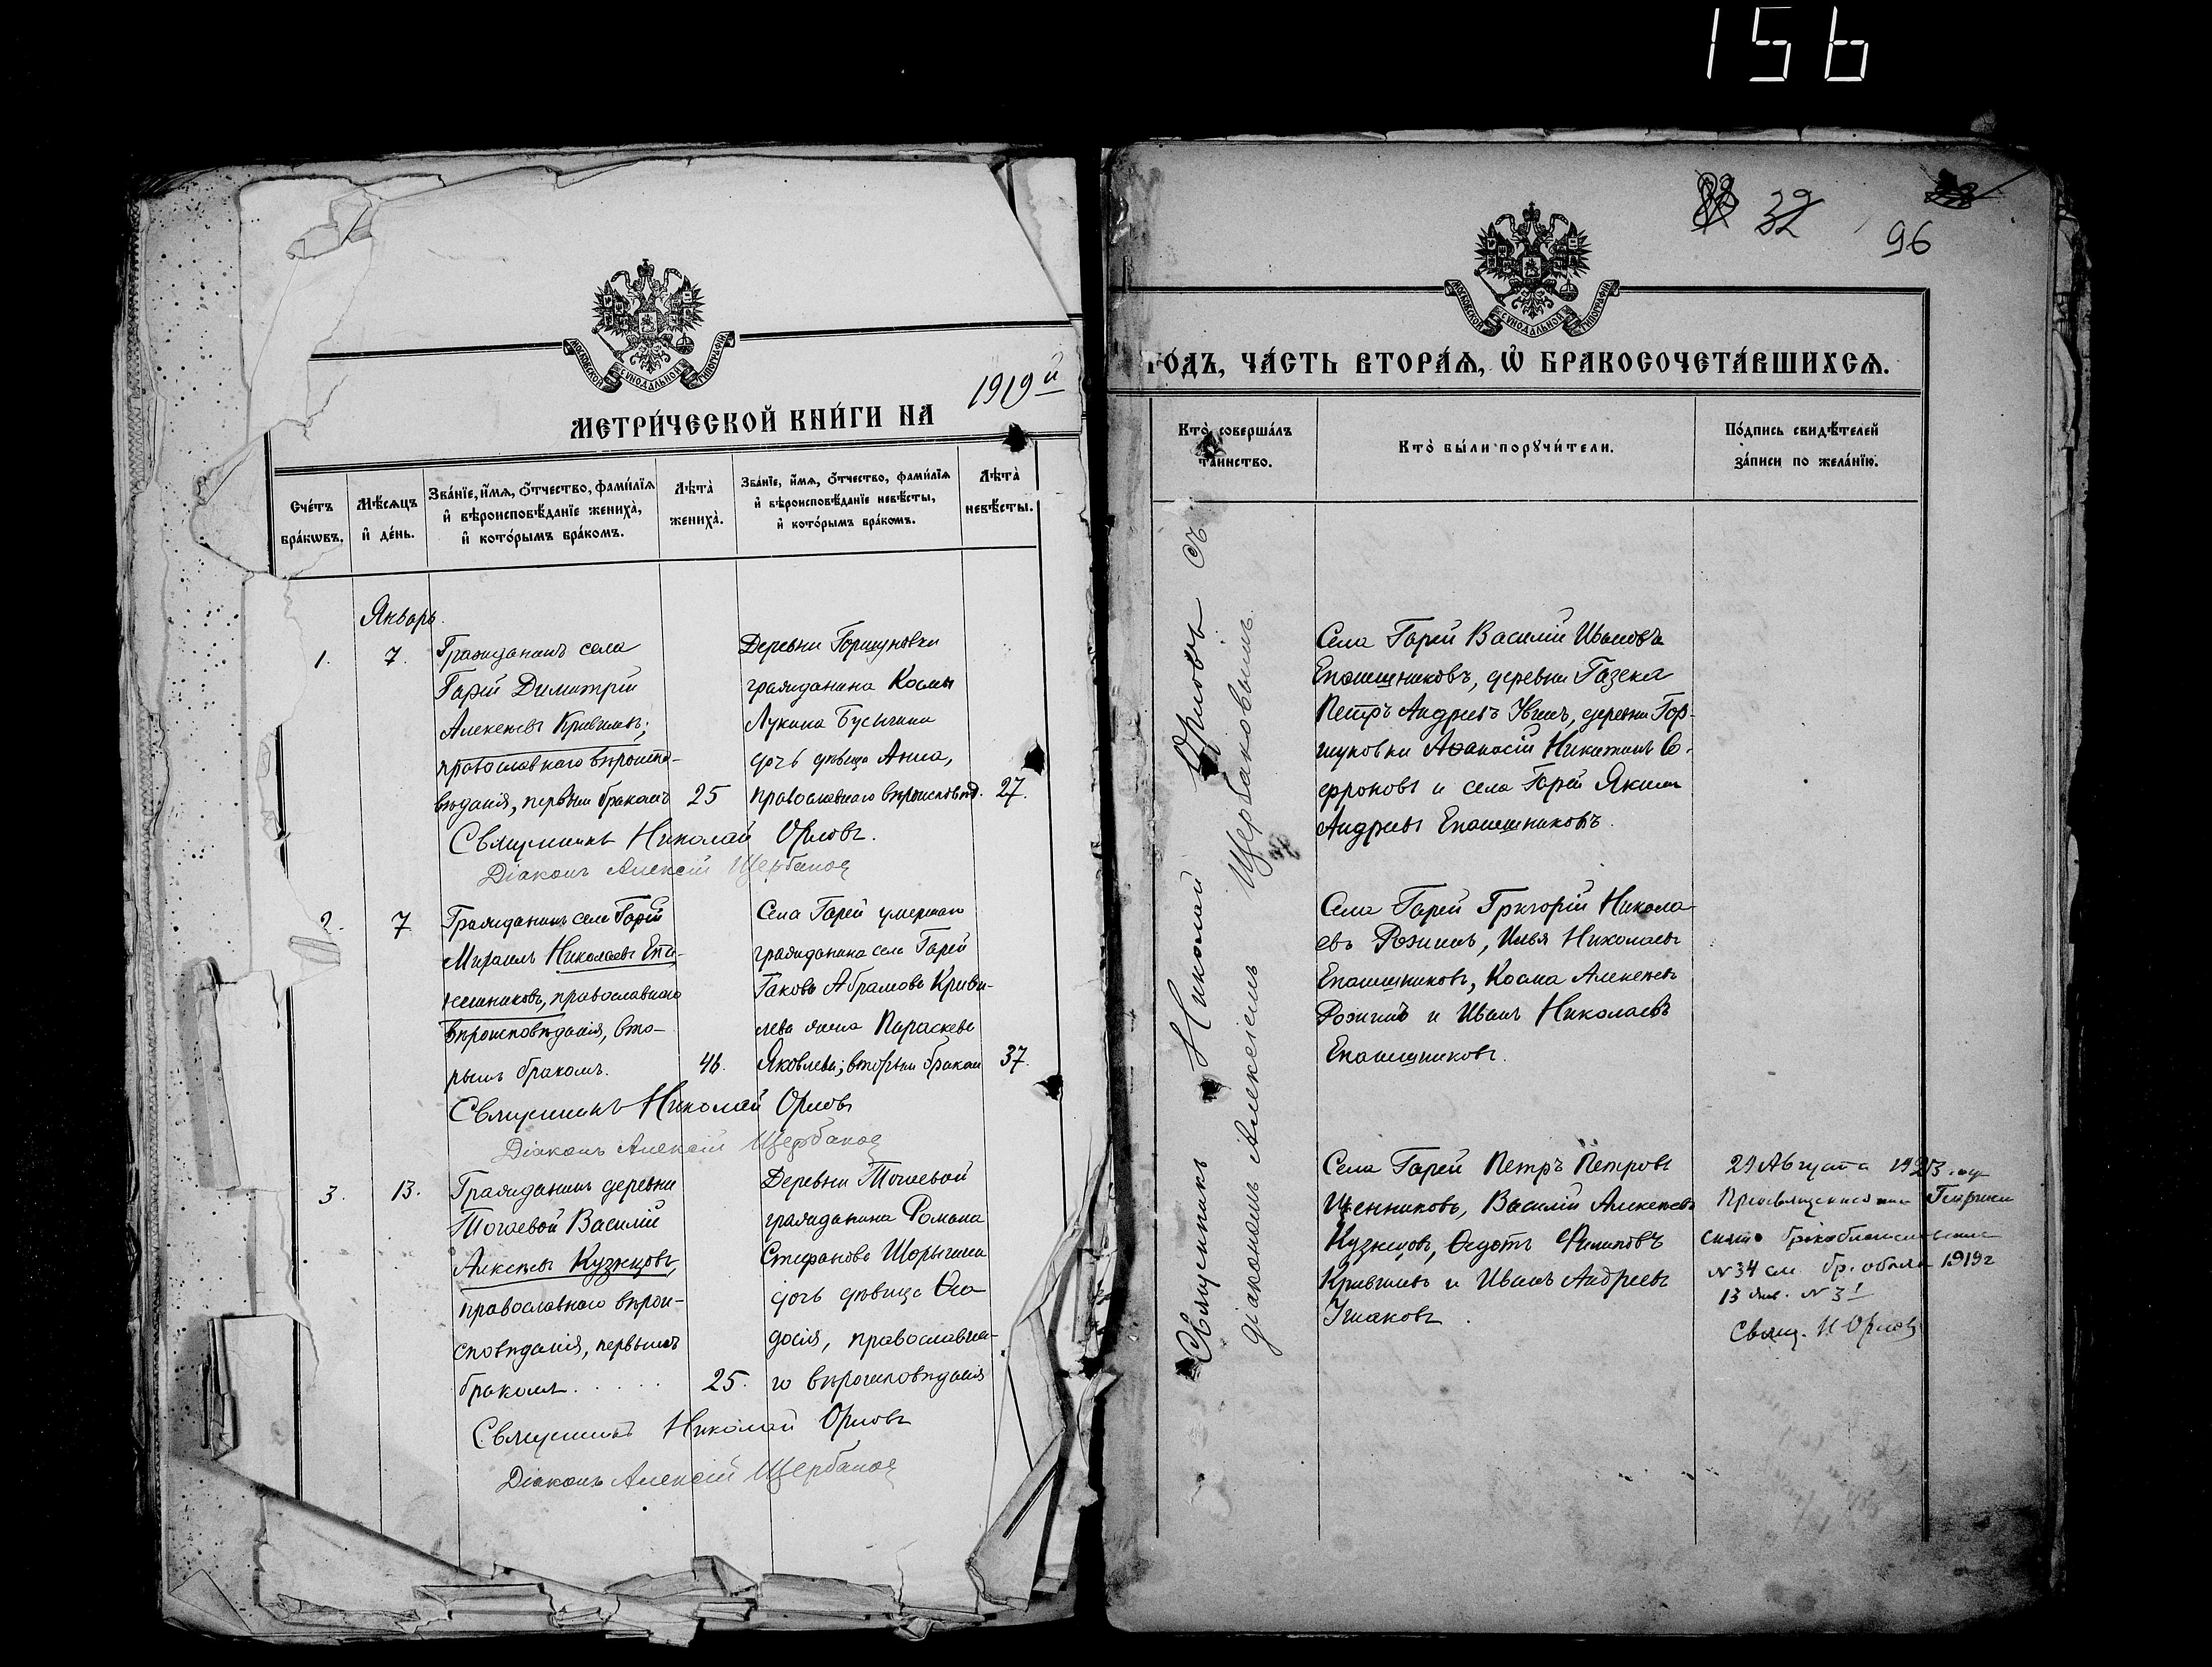 156
32
96
МОСКОВСКОЙ СѴНОДАЛЬНОЙ ТИПОГРАФІИ
МЕТРИ́ЧЕСКОЙ КНИ́ГИ НА 1919й
Сче́тъ бра́кѡвъ.
Мѣ́сѧцъ и҆ де́нь.
Зва́нїе, и҆́мѧ, ѻ҆́тчество, фами́лїѧ
и҆ вѣроисповѣ́данїе жениха̀,
и҆ кото́рымъ бра́комъ.
Лѣ̑та̀ жениха̀.
Зва́нїе, и҆́мѧ, ѻ҆́тчество, фами́лїѧ
и҆ вѣроисповѣ́данїе невѣ́сты,
и҆ кото́рымъ бра́комъ.
Лѣ̑та̀ невѣ́сты.
Январь.
1.
7.
Гражданинъ села
Гарей Димитрій
Алексѣевъ Кривилевъ;
православнаго вѣроиспо-
вѣданія, первымъ бракомъ
25
Деревни Горшуновки
гражданина Космы
Лукина Бусыгина
дочь дѣвица Анна,
православнаго вѣроисповѣд.
27.
Священникъ Николай Орловъ.
Діаконъ Алексій Щербаков
2.
7.
Гражданинъ села Гарей
Михаилъ Николаевъ Епа-
нешниковъ, православнаго
вѣроисповѣданія, вто-
рымъ бракомъ.
46.
Села Гарей умершаго
гражданина села Гарей
Іакова Абрамова Криви-
лева жена Параскева
Яковлева; вторымъ бракомъ
37.
Священникъ Николай Орловъ
Діаконъ Алексій Щербаков
3.
13.
Гражданинъ деревни
Василій
Алексѣевъ Кузнецовъ,
православнаго вѣрои-
сповѣданія, первымъ
бракомъ.
25.
Деревни
гражданина Романа
Стефанова Шорыгина
дочь дѣвица Ѳео-
досія, православна-
го вѣроисповѣданія
Священникъ Николай Орловъ
Діаконъ Алексій Щербаков
МОСКОВСКОЙ СѴНОДАЛЬНОЙ ТИПОГРАФІИ
ГО́ДЪ, ЧА́СТЬ ВТОРА́Ѧ, Ѡ҆ БРАКОСОЧЕТА́ВШИХСѦ.
Кто̀ соверша́лъ та́инство.
Кто̀ бы́ли порꙋчи́тели.
По́дпись свидѣ́телей
за́писи по жела́нїю.
Священникъ Николай Орловъ съ
діакономъ Алексіемъ Щербаковымъ
Села Гарей Василій Ивановъ
Епанешниковъ, деревни Газека
Петръ Андреевъ, деревни Гор-
шуновки Аѳанасій Никитинъ Со-
фроновъ и села Гарей Якимъ
Андреевъ Епанешниковъ.
Села Гарей Григорій Никола-
евъ Рожинъ, Илья Николаевъ
Епанешниковъ, Косма Алексѣевъ
Рожинъ и Иванъ Николаевъ
Епанешниковъ.
Села Гарей Петръ Петровъ
Щенниковъ, Василій Алексѣевъ
Кузнецовъ, Ѳедотъ Филиповъ
Кривилевъ и Иванъ Андреевъ
Ушаковъ.
29 Августа 1923 года
№ 34 см. бр. обыскъ 1919 г
13 янв. № 3!
Свящ. Н Орловъ